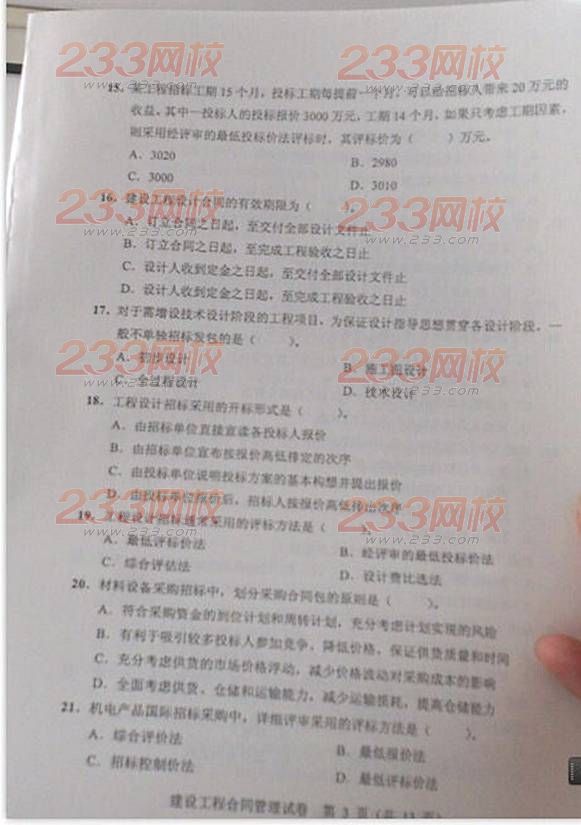 233网校 233网校
www.233.com www.233.com
15. 某工程招标工期15个月，投标工期每提前一个月，可以给招标人带来20万元的
收益。其中一投标人的投标报价3000万元，工期14个月。如果只考虑工期因素，
则采用经评审的最低投标价法评标时，其评标价为（ ）万元。
A. 3020 B. 2980
C. 3000 D. 3010
233网校 233网校
www.233.com www.233.com
16. 建设工程设计合同的有效期限为（ ）。
A. 订立合同之日起，至交付全部设计文件止
B. 订立合同之日起，至完成工程验收之日止
C. 设计人收到定金之日起，至交付全部设计文件止
D. 设计人收到定金之日起，至完成工程验收之日止
17. 对于需增设技术设计阶段的工程项目，为保证设计指导思想贯穿各设计阶段，一
般不单独招标发包的是（ ）。
233网校 233网校
www.233.com www.233.com
A. 初步设计 B. 施工图设计
C. 全过程设计 D. 技术设计
18. 工程设计招标采用的开标形式是（ ）。
A. 由招标单位直接宣读各投标人报价
B. 由招标单位宣布按报价高低排定的次序
C. 由投标单位说明投标方案的基本构想并提出报价
D. 由投标单位报价后，招标人按报价高低传出次序
233网校 233网校
www.233.com www.233.com
19. 工程设计招标通常采用的评标方法是（ ）。
A. 最低评标价法 B. 经评审的最低投标价法
C. 综合评估法 D. 设计费比选法
20. 材料设备采购招标中，划分采购合同包的原则是（ ）。
A. 符合采购资金的到位计划和周转计划，充分考虑计划实现的风险
B. 有利于吸引较多投标人参加竞争，降低价格，保证供货质量和时间
C. 充分考虑供货的市场价格浮动，减少价格波动对采购成本的影响
D. 全面考虑供货、仓储和运输能力，减少运输损耗，提高仓储能力
21. 机电产品国际招标采购中，详细评审采用的评标方法是（ ）。
A. 综合评价法 B. 最低报价法
C. 招标控制价法 D. 最低评标价法
建设工程合同管理试卷 第 3 页（共 13 页）